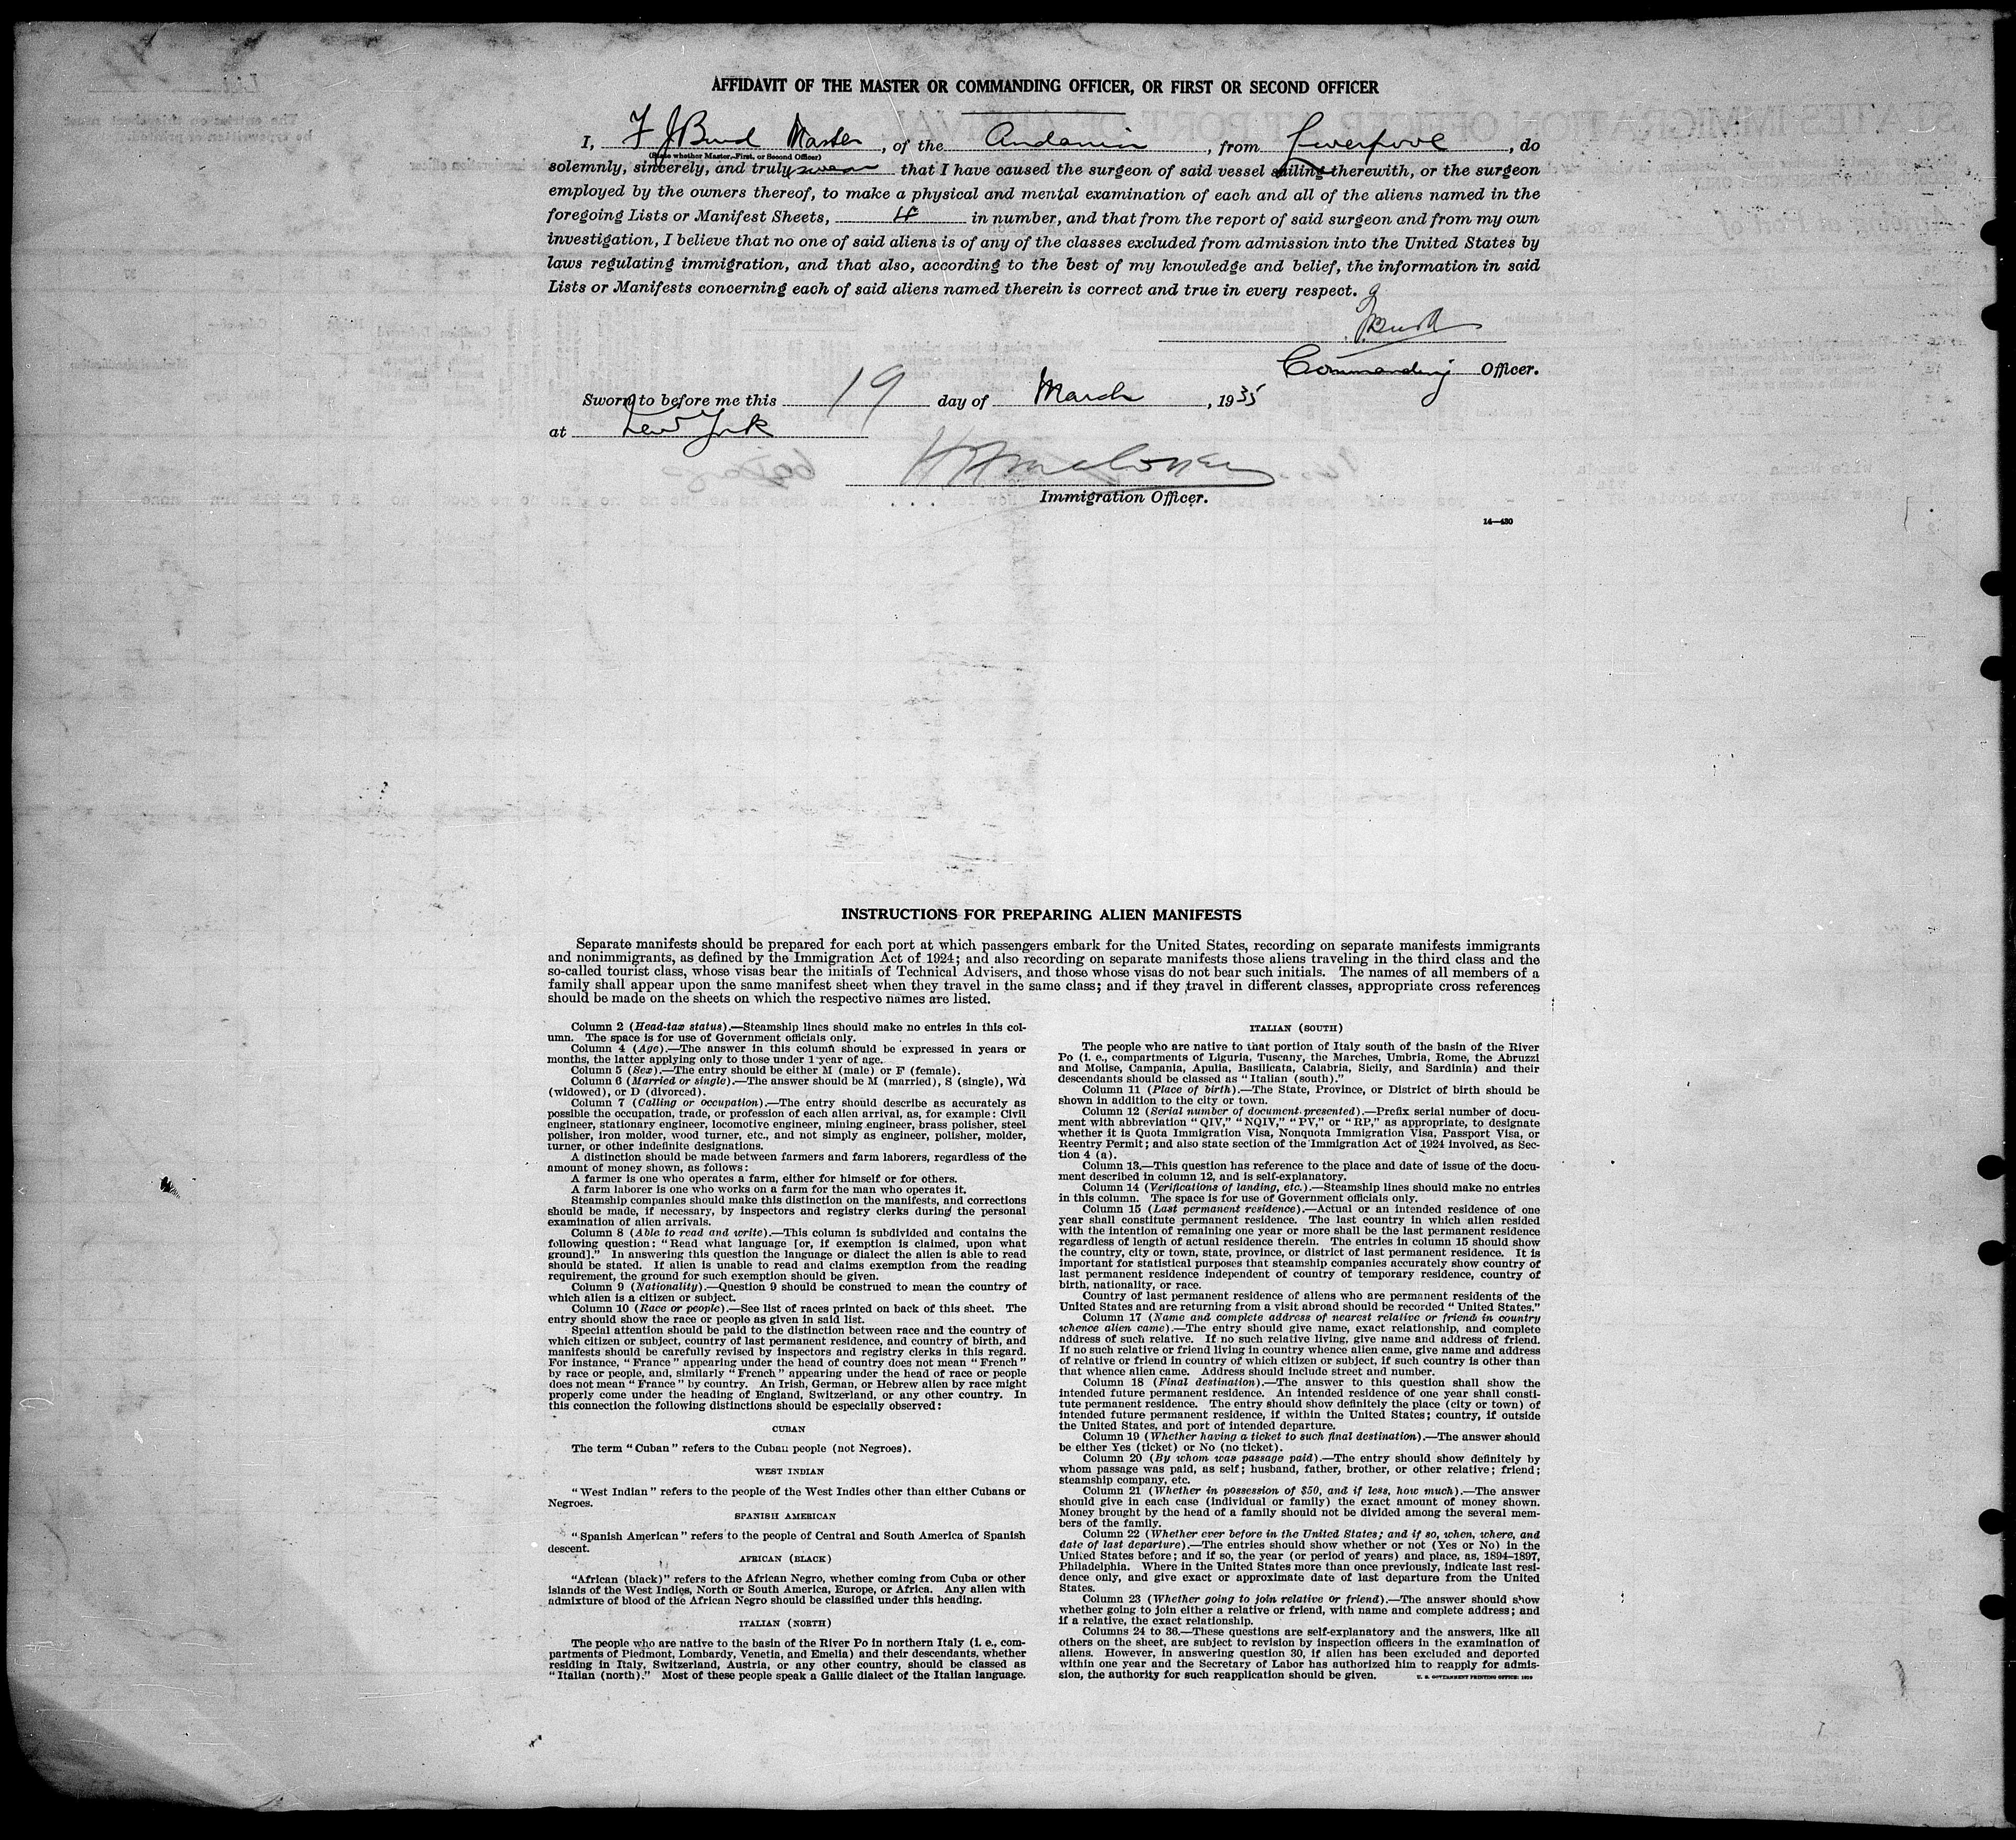 AFFIDAVIT OF THE MASTER OR COMMANDING OFFICER, OR FIRST OR SECOND OFFICER
I, F J Burd Master, of the Andania, from Liverpool, do
(State whether Master, First, or Second Officer)
solemnly, sincerely, and truly swear that I have caused the surgeon of said vessel sailing therewith, or the surgeon
employed by the owners thereof, to make a physical and mental examination of each and all of the aliens named in the
foregoing Lists or Manifest Sheets, 4 in number, and that from the report of said surgeon and from my own
investigation, I believe that no one of said aliens is of any of the classes excluded from admission into the United States by
laws regulating immigration, and that also, according to the best of my knowledge and belief, the information in said
Lists or Manifests concerning each of said aliens named therein is correct and true in every respect.
Commanding Officer.
Sworn to before me this 19 day of March, 1935
at New York
Immigration Officer.
14—430
INSTRUCTIONS FOR PREPARING ALIEN MANIFESTS
Separate manifests should be prepared for each port at which passengers embark for the United States, recording on separate manifests immigrants
and nonimmigrants, as defined by the Immigration Act of 1924; and also recording on separate manifests those aliens traveling in the third class and the
so-called tourist class, whose visas bear the initials of Technical Advisers, and those whose visas do not bear such initials. The names of all members of a
family shall appear upon the same manifest sheet when they travel in the same class; and if they travel in different classes, appropriate cross references
should be made on the sheets on which the respective names are listed.
Column 2 (Head-tax status).—Steamship lines should make no entries in this col-
umn. The space is for use of Government officials only.
Column 4 (Age).—The answer in this column should be expressed in years or
months, the latter applying only to those under 1 year of age.
Column 5 (Sex).—The entry should be either M (male) or F (female).
Column 6 (Married or single).—The answer should be M (married), S (single), Wd
(widowed), or D (divorced).
Column 7 (Calling or occupation).—The entry should describe as accurately as
possible the occupation, trade, or profession of each alien arrival, as, for example: Civil
engineer, stationary engineer, locomotive engineer, mining engineer, brass polisher, steel
polisher, iron molder, wood turner, etc., and not simply as engineer, polisher, molder,
turner, or other indefinite designations.
A distinction should be made between farmers and farm laborers, regardless of the
amount of money shown, as follows:
A farmer is one who operates a farm, either for himself or for others.
A farm laborer is one who works on a farm for the man who operates it.
Steamship companies should make this distinction on the manifests, and corrections
should be made, if necessary, by inspectors and registry clerks during the personal
examination of alien arrivals.
Column 8 (Able to read and write).—This column is subdivided and contains the
following question: "Read what language [or, if exemption is claimed, upon what
ground]." In answering this question the language or dialect the alien is able to read
should be stated. If alien is unable to read and claims exemption from the reading
requirement, the ground for such exemption should be given.
Column 9 (Nationality).—Question 9 should be construed to mean the country of
which alien is a citizen or subject.
Column 10 (Race or people).—See list of races printed on back of this sheet. The
entry should show the race or people as given in said list.
Special attention should be paid to the distinction between race and the country of
which citizen or subject, country of last permanent residence, and country of birth, and
manifests should be carefully revised by inspectors and registry clerks in this regard.
For instance, "France" appearing under the head of country does not mean "French"
by race or people, and, similarly "French" appearing under the head of race or people
does not mean "France" by country. An Irish, German, or Hebrew alien by race might
properly come under the heading of England, Switzerland, or any other country. In
this connection the following distinctions should be especially observed:
CUBAN
The term "Cuban" refers to the Cuban people (not Negroes).
WEST INDIAN
"West Indian" refers to the people of the West Indies other than either Cubans or
Negroes.
SPANISH AMERICAN
"Spanish American" refers to the people of Central and South America of Spanish
descent.
AFRICAN (BLACK)
"African (black)" refers to the African Negro, whether coming from Cuba or other
islands of the West Indies, North or South America, Europe, or Africa. Any alien with
admixture of blood of the African Negro should be classified under this heading.
ITALIAN (NORTH)
The people who are native to the basin of the River Po in northern Italy (i. e., com-
partments of Piedmont, Lombardy, Venetia, and Emelia) and their descendants, whether
residing in Italy, Switzerland, Austria, or any other country, should be classed as
"Italian (north)." Most of these people speak a Gallic dialect of the Italian language.
ITALIAN (SOUTH)
The people who are native to that portion of Italy south of the basin of the River
Po (i. e., compartments of Liguria, Tuscany, the Marches, Umbria, Rome, the Abruzzi
and Molise, Campania, Apulia, Basilicata, Calabria, Sicily, and Sardinia) and their
descendants should be classed as "Italian (south)."
Column 11 (Place of birth).—The State, Province, or District of birth should be
shown in addition to the city or town.
Column 12 (Serial number of document presented).—Prefix serial number of docu-
ment with abbreviation "QIV," "NQIV," "PV," or "RP," as appropriate, to designate
whether it is Quota Immigration Visa, Nonquota Immigration Visa, Passport Visa, or
Reentry Permit; and also state section of the Immigration Act of 1924 involved, as Sec-
tion 4 (a).
Column 13.—This question has reference to the place and date of issue of the docu-
ment described in column 12, and is self-explanatory.
Column 14 (Verifications of landing, etc.).—Steamship lines should make no entries
in this column. The space is for use of Government officials only.
Column 15 (Last permanent residence).—Actual or an intended residence of one
year shall constitute permanent residence. The last country in which alien resided
with the intention of remaining one year or more shall be the last permanent residence
regardless of length of actual residence therein. The entries in column 15 should show
the country, city or town, state, province, or district of last permanent residence. It is
important for statistical purposes that steamship companies accurately show country of
last permanent residence independent of country of temporary residence, country of
birth, nationality, or race.
Country of last permanent residence of aliens who are permanent residents of the
United States and are returning from a visit abroad should be recorded "United States."
Column 17 (Name and complete address of nearest relative or friend in country
whence alien came).—The entry should give name, exact relationship, and complete
address of such relative. If no such relative living, give name and address of friend.
If no such relative or friend living in country whence alien came, give name and address
of relative or friend in country of which citizen or subject, if such country is other than
that whence alien came. Address should include street and number.
Column 18 (Final destination).—The answer to this question shall show the
intended future permanent residence. An intended residence of one year shall consti-
tute permanent residence. The entry should show definitely the place (city or town) of
intended future permanent residence, if within the United States; country, if outside
the United States, and port of intended departure.
Column 19 (Whether having a ticket to such final destination).—The answer should
be either Yes (ticket) or No (no ticket).
Column 20 (By whom was passage paid).—The entry should show definitely by
whom passage was paid, as self; husband, father, brother, or other relative; friend;
steamship company, etc.
Column 21 (Whether in possession of $50, and if less, how much).—The answer
should give in each case (individual or family) the exact amount of money shown.
Money brought by the head of a family should not be divided among the several mem-
bers of the family.
Column 22 (Whether ever before in the United States; and if so, when, where, and
date of last departure).—The entries should show whether or not (Yes or No) in the
United States before; and if so, the year (or period of years) and place, as, 1894–1897,
Philadelphia. Where in the United States more than once previously, indicate last resi-
dence only, and give exact or approximate date of last departure from the United
States.
Column 23 (Whether going to join relative or friend).—The answer should show
whether going to join either a relative or friend, with name and complete address; and
if a relative, the exact relationship.
Columns 24 to 36.—These questions are self-explanatory and the answers, like all
others on the sheet, are subject to revision by inspection officers in the examination of
aliens. However, in answering question 30, if alien has been excluded and deported
within one year and the Secretary of Labor has authorized him to reapply for admis-
sion, the authority for such reapplication should be given.
U. S. GOVERNMENT PRINTING OFFICE: